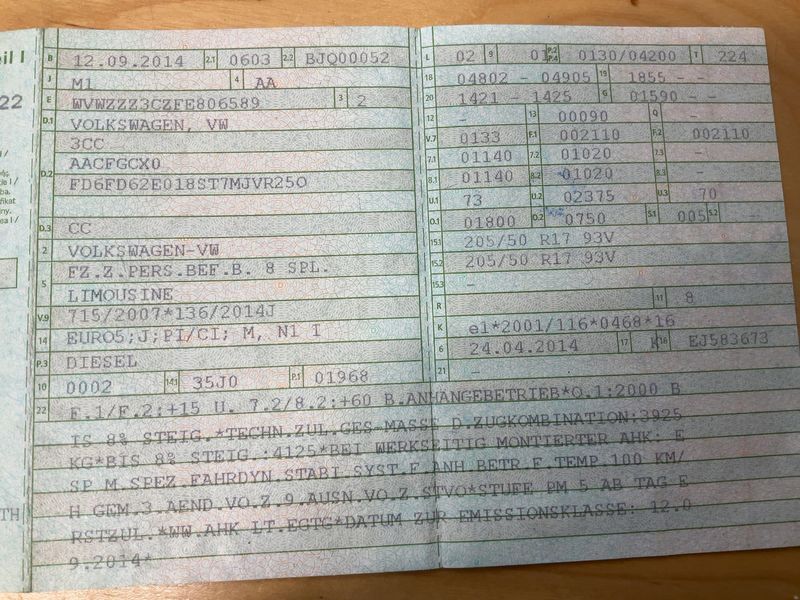 eil I
B 12.09.2014 2.1 0603 2.2 BJQ00052
J M1 4 AA
E WVWZZZ3CZFE806589 3 2
D.1 VOLKSWAGEN, VW
3CC
D.2 AACFGCX0
FD6FD62E018ST7MJVR25O
D.3 CC
2 VOLKSWAGEN-VW
5 FZ.Z.PERS.BEF.B. 8 SPL.
LIMOUSINE
V.9 715/2007*136/2014J
14 EURO5;J;PI/CI; M, N1 I
P.3 DIESEL
10 0002 14.1 35J0 P.1 01968
L 02 9 01 P.2 P.4 0130/04200 T 224
18 04802 - 04905 19 1855 - -
20 1421 - 1425 G 01590 - -
12 - 13 00090 Q -
V.7 0133 F.1 002110 F.2 002110
7.1 01140 7.2 01020 7.3 -
8.1 01140 8.2 01020 8.3 -
U.1 73 U.2 02375 U.3 70
O.1 01800 O.2 0750 S.1 005 S.2 -
15.1 205/50 R17 93V
15.2 205/50 R17 93V
15.3 -
R 11 8
K e1*2001/116*0468*16
6 24.04.2014 17 K 16 EJ583673
21 -
22 F.1/F.2:+15 U. 7.2/8.2:+60 B.ANHANGEBETRIEB*O.1:2000 B
IS 8% STEIG.*TECHN.ZUL.GES.MASSE D.ZUGKOMBINATION:3925
KG*BIS 8% STEIG.:4125*BEI WERKSEITIG MONTIERTER AHK: E
SP M.SPEZ.FAHRDYN.STABI.SYST.F.ANH.BETR.F.TEMP.100 KM/
H GEM.3.AEND.VO.Z.9.AUSN.VO.Z.STVO*STUFE PM 5 AB TAG E
RSTZUL.*WW.AHK LT.EGTG*DATUM ZUR EMISSIONSKLASSE: 12.0
9.2014*
22
TH